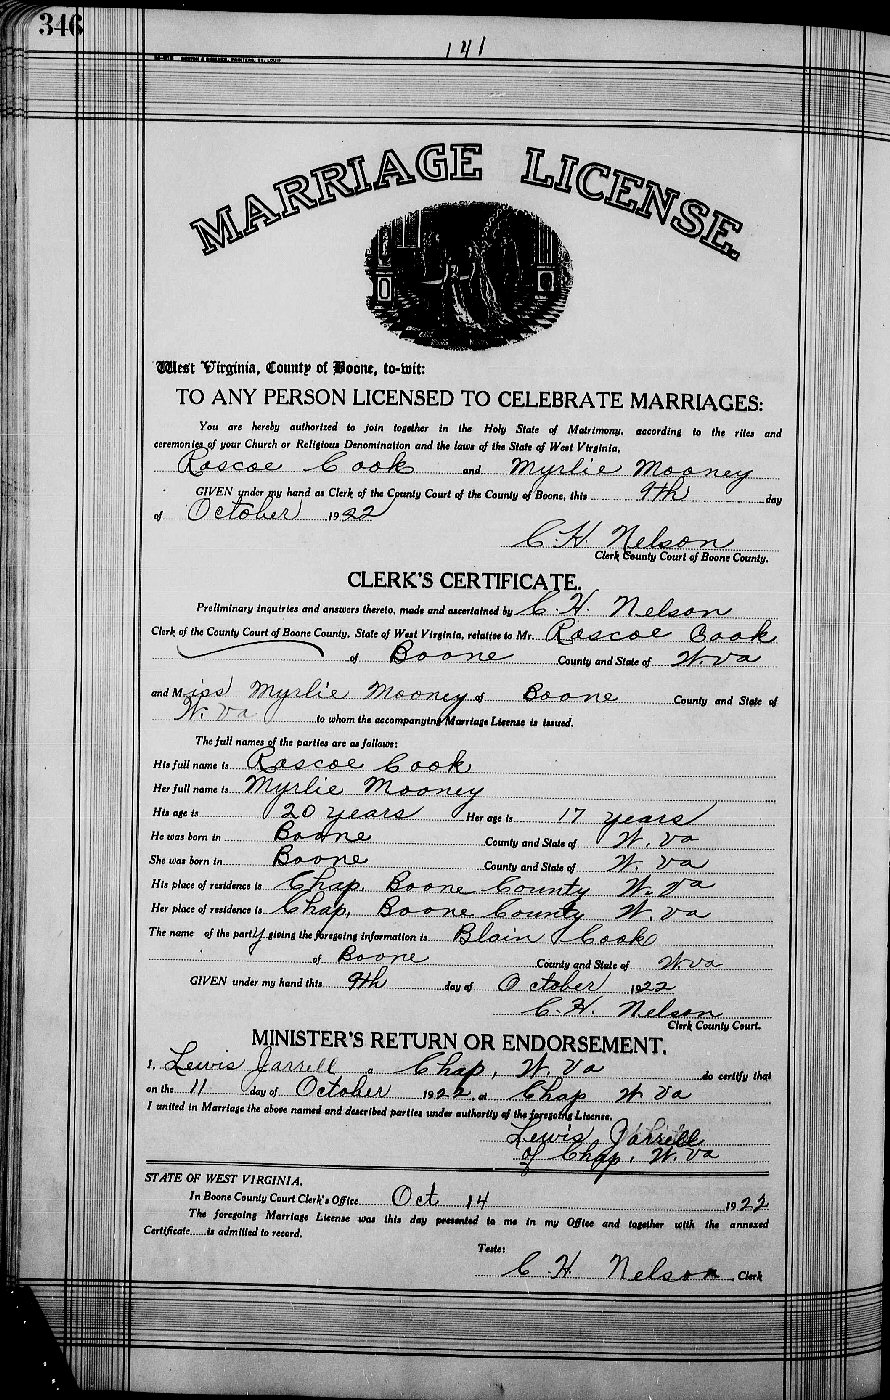 346
141
MARRIAGE LICENSE.
West Virginia, County of Boone, to-wit:
TO ANY PERSON LICENSED TO CELEBRATE MARRIAGES:
You are hereby authorized to join together in the Holy State of Matrimony, according to the rites and
ceremonies of your Church or Religious Denomination and the laws of the State of West Virginia,
Roscoe Cook and Myrlie Mooney
GIVEN under my hand as Clerk of the County Court of the County of Boone, this 9th day
of October 1922
C. H. Nelson
Clerk County Court of Boone County.
CLERK'S CERTIFICATE.
Preliminary inquiries and answers thereto, made and ascertained by C. H. Nelson
Clerk of the County Court of Boone County, State of West Virginia, relative to Mr. Roscoe Cook
of Boone County and State of W. Va
and Miss Myrlie Mooney of Boone County and State of
W. Va to whom the accompanying Marriage License is issued.
The full names of the parties are as follows:
His full name is Roscoe Cook
Her full name is Myrlie Mooney
His age is 20 years Her age is 17 years
He was born in Boone County and State of W. Va
She was born in Boone County and State of W. Va
His place of residence is Chap, Boone County W. Va
Her place of residence is Chap, Boone County W. Va
The name of the party giving the foregoing information is Blain Cook
of Boone County and State of W Va
GIVEN under my hand this 9th day of October 1922
C. H. Nelson
Clerk County Court.
MINISTER'S RETURN OR ENDORSEMENT.
I, Lewis Jarrell o Chap, W. Va do certify that
on the 11 day of October 1922, at Chap W Va
I united in Marriage the above named and described parties under authority of the foregoing License.
Lewis Jarrell
of Chap, W. Va
STATE OF WEST VIRGINIA.
In Boone County Court Clerk's Office Oct 14 1922
The foregoing Marriage License was this day presented to me in my Office and together with the annexed
Certificate is admitted to record.
Teste:
C. H Nelson, Clerk